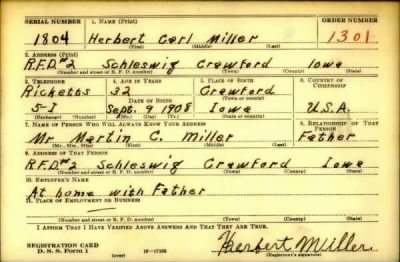 SERIAL NUMBER 1. NAME (Print) ORDER NUMBER
1804 Herbert Carl Miller 1301
(First) (Middle) (Last)
2. ADDRESS (Print)
R.F.D.#2 Schleswig Crawford Iowa
(Number and street or R. F. D. number) (Town) (County) (State)
3. TELEPHONE 4. AGE IN YEARS 5. PLACE OF BIRTH 6. COUNTRY OF CITIZENSHIP
Ricketts 32 Crawford
DATE OF BIRTH (Town or county)
5-I Sept. 9 1908 Iowa U.S.A.
7. NAME OF PERSON WHO WILL ALWAYS KNOW YOUR ADDRESS 8. RELATIONSHIP OF THAT PERSON
Mr. Martin C. Miller Father
(Mr., Mrs., Miss) (First) (Middle) (Last)
9. ADDRESS OF THAT PERSON
R.F.D.#2 Schleswig Crawford Iowa
(Number and street or R. F. D. number) (Town) (County) (State)
10. EMPLOYER'S NAME
At home with Father
11. PLACE OF EMPLOYMENT OR BUSINESS
(Number and street or R. F. D. number) (Town) (County) (State)
I AFFIRM THAT I HAVE VERIFIED ABOVE ANSWERS AND THAT THEY ARE TRUE.
REGISTRATION CARD
D. S. S. Form 1 (over) Herbert Miller
(Registrant's signature)